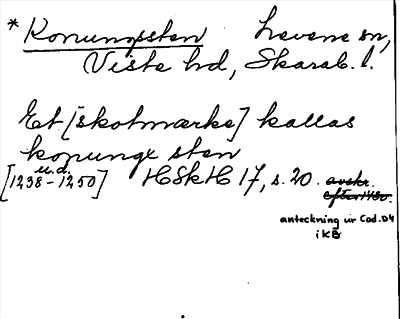 * Konungssten Levene sn,
Viste hd, Skarab. l.
Et [skotmærke] kallas
konungx sten
u.d.
[1238-1250] HSkH 17, s. 20. avskr.
efter 1450.
anteckning ur Cod. D4
i KB